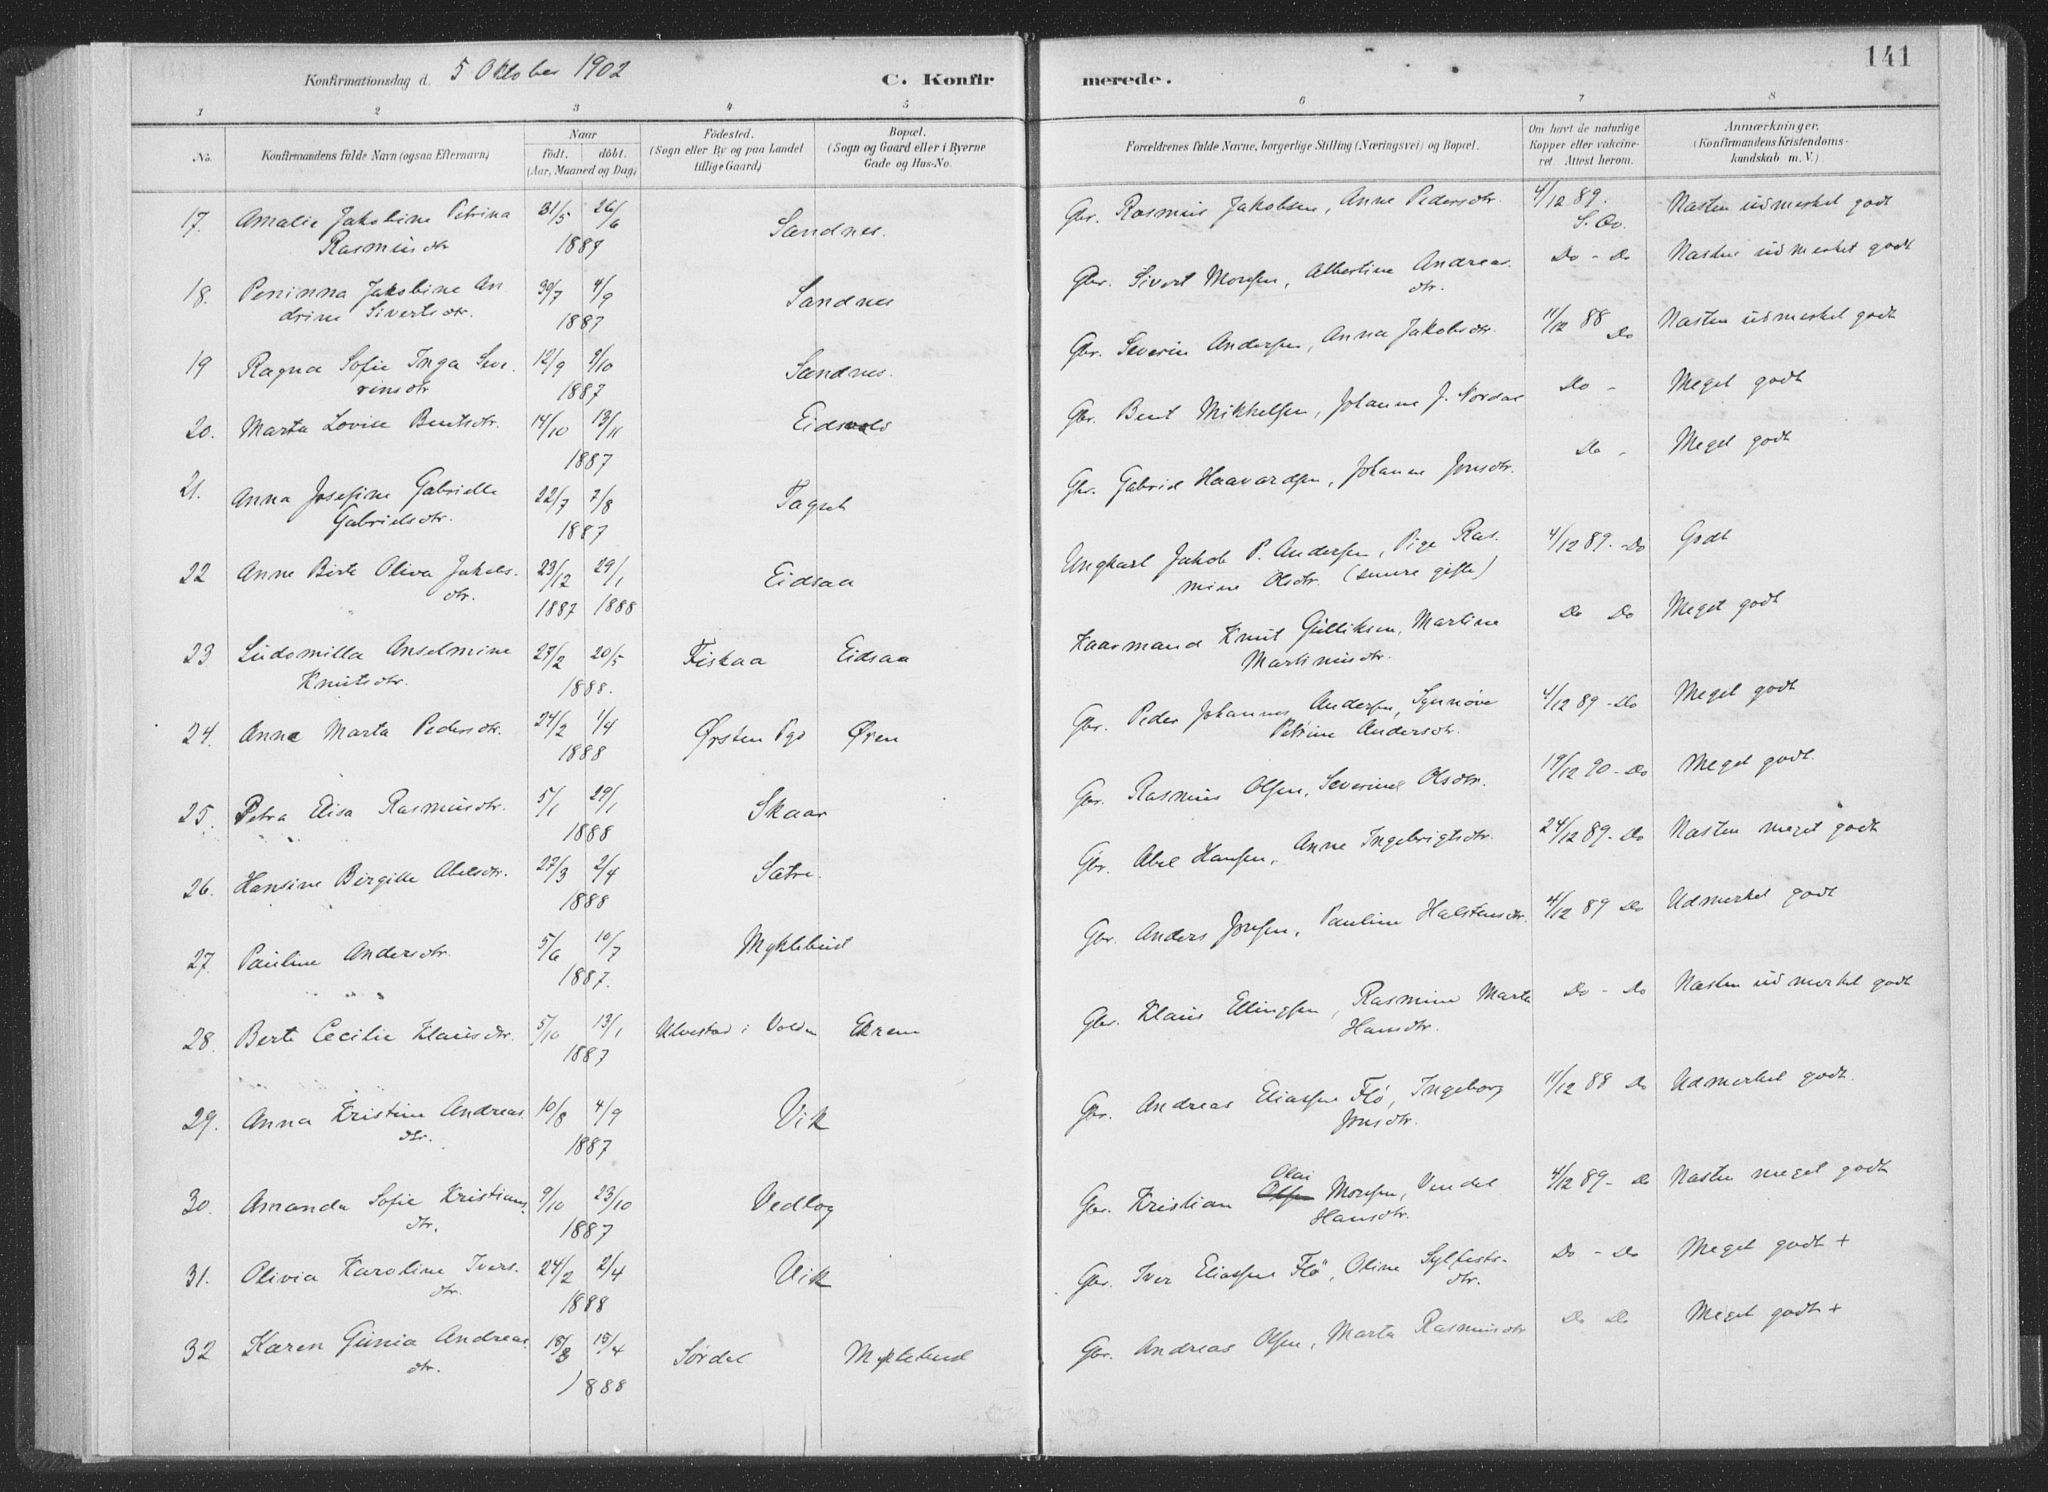 Konfirmationsdag d. 5 Oktober 1902
C. Konfirmerede.
141
1 2 3 4 5 6 7 8
No.
Konfirmandens fulde Navn (ogsaa Efternavn)
Naar
födt. döbt.
(Aar, Maaned og Dag)
Födested.
(Sogn eller By og paa Landet
tillige Gaard)
Bopæl.
(Sogn og Gaard eller i Byerne
Gade og Hus-No.
Forældrenes fulde Navne, borgerlige Stilling (Næringsvei) og Bopæl.
Om havt de naturlige
Kopper eller vakcine-
ret. Attest herom.
Anmærkninger.
(Konfirmandens Kristendoms-
kundskab m. V.)
17. Amalie Jakobine Petrina 31/5 26/6 Sandnes. Gbr. Rasmus Jakobsen, Anne Pedersdtr. 4/12 89. Næsten udmerket godt
Rasmusdtr 1887 S. Ov.
18. Peninna Jakobine An- 30/7 4/9 Sandnes Gbr. Sivert Monsen, Albertine Andreas- Do - Do Næsten udmerket godt
drine Sivertsdtr. 1887 dtr.
19 Ragna Sofie Inga Seve- 12/9 9/10 Sandnes. Gbr. Severin Andersen, Anna Jakobsdtr. 11/12 88 Do Næsten udmerket godt
rinsdtr 1887
20. Marta Lovise Bentsdtr. 14/10 13/11 Eidsvold Gbr. Bent Mikkelsen, Johanne J. Nordal Do - Meget godt
1887
21. Anna Josefine Gabrielle 22/7 7/8 Gbr. Gabriel Haavardsen, Johanne Jonsdtr. Do - Meget godt
Gabrielsdtr. 1887
22 Anne Birte Oliva Jakobs- 23/12 29/1 Eidsaa Ungkarl Jakob P. Andersen, Pige Ras- 4/12 89. Do Godt
dtr. 1887 1888 mine Olsdtr. (senere gifte)
23 Ludomilla Anselmine 27/2 20/5 Fiskaa Eidsaa Kaarmand Knut Gulliksen, Martine Do Do Meget godt
Knutsdtr. 1888. Martinusdtr.
24. Anne Marta Pedersdtr. 24/2 1/4 Ørsten Pgd Øren Gbr. Peder Johannes Andersen, Synnøve 4/12 89 - Do Meget godt
1888 Petrine Andersdtr.
25. Petra Elisa Rasmusdtr. 5/1 29/1 Skaar Gbr. Rasmus Olsen, Severine Olsdtr. 19/12 90 - Do Meget godt.
1888
26. Hansine Birgitte Abelsdtr. 27/3 2/4 Sætre. Gbr. Abel Hansen, Anne Ingebrigtsdtr. 24/12 89 - Do Næsten meget godt
1888
27. Pauline Andersdtr. 5/6 10/7 Myklebust Gbr. Anders Jonsen, Pauline Halstensdtr. 4/12 89 Do Udmerket godt
1887.
28. Berte Cecilie Klausdtr. 5/10 13/1 Ulvestad i Volden Ekrem Gbr. Klaus Ellingsen, Rasmine Marta Do - Do Næsten udmerket godt
1887 Hansdtr.
29. Anna Kristine Andreas 10/8 4/9 Vik Gbr. Andreas Eliassen Flö, Ingeborg 11/12 88 Do Udmerket godt.
dtr. 1887 Jonsdtr.
30. Amanda Sofie Kristians- 9/10 23/10 Vedlog Gbr. Kristian Olsen Olai Monsen, Vendel 4/12 89 - Do Næsten meget godt
dtr. 1887 Hansdtr.
31. Olivia Karoline Ivers- 24/2 2/4 Vik Gbr. Iver Eliassen Flö, Oline Sylfests- Do - Do Meget godt +
dtr. 1888 dtr.
32 Karen Gunia Andreas 18/3 15/4 Sørdal Myklebust Gbr. Andreas Olsen, Marta Rasmusdtr Do Do Meget godt +
dtr. 1888